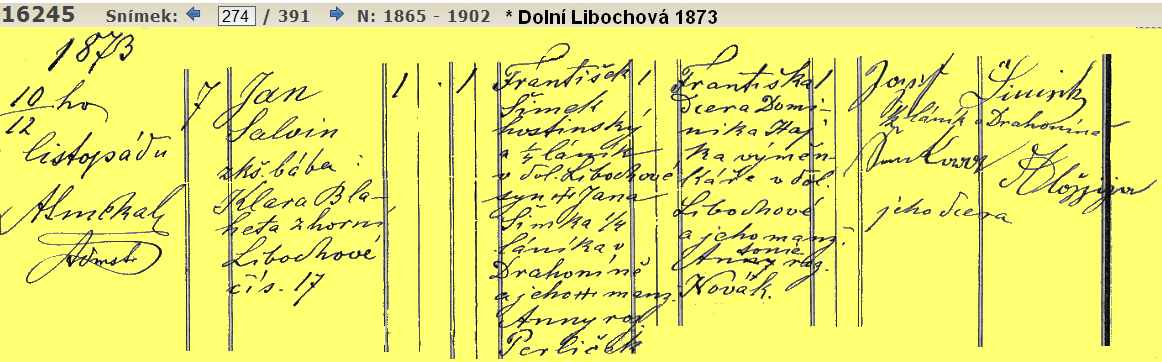 16245 Snímek: 274 / 391 N: 1865 - 1902 * Dolní Libochová 1873
1873
10 ho
12
listopádu
Administr
7
Jan
Salvin
zkš. bába
Klara Bla-
heta z horní
Libochové
čís. 17
1 . 1
František 1
Šimek
hostinský
a 1/4 láník
v dol. Libochové
syn †† Jana
Šimka 1/4
láníka v
Drahoníně
a jeho †† manž.
Anny roz
Perliček
Františka 1
dcera Domi-
nika Haj
ka výměn-
káře v dol.
Libochové
a jeho manž.
Antonie roz.
Novák.
Jozef
1/2 láník v Drahonína
Aloyzya
jeho dcera